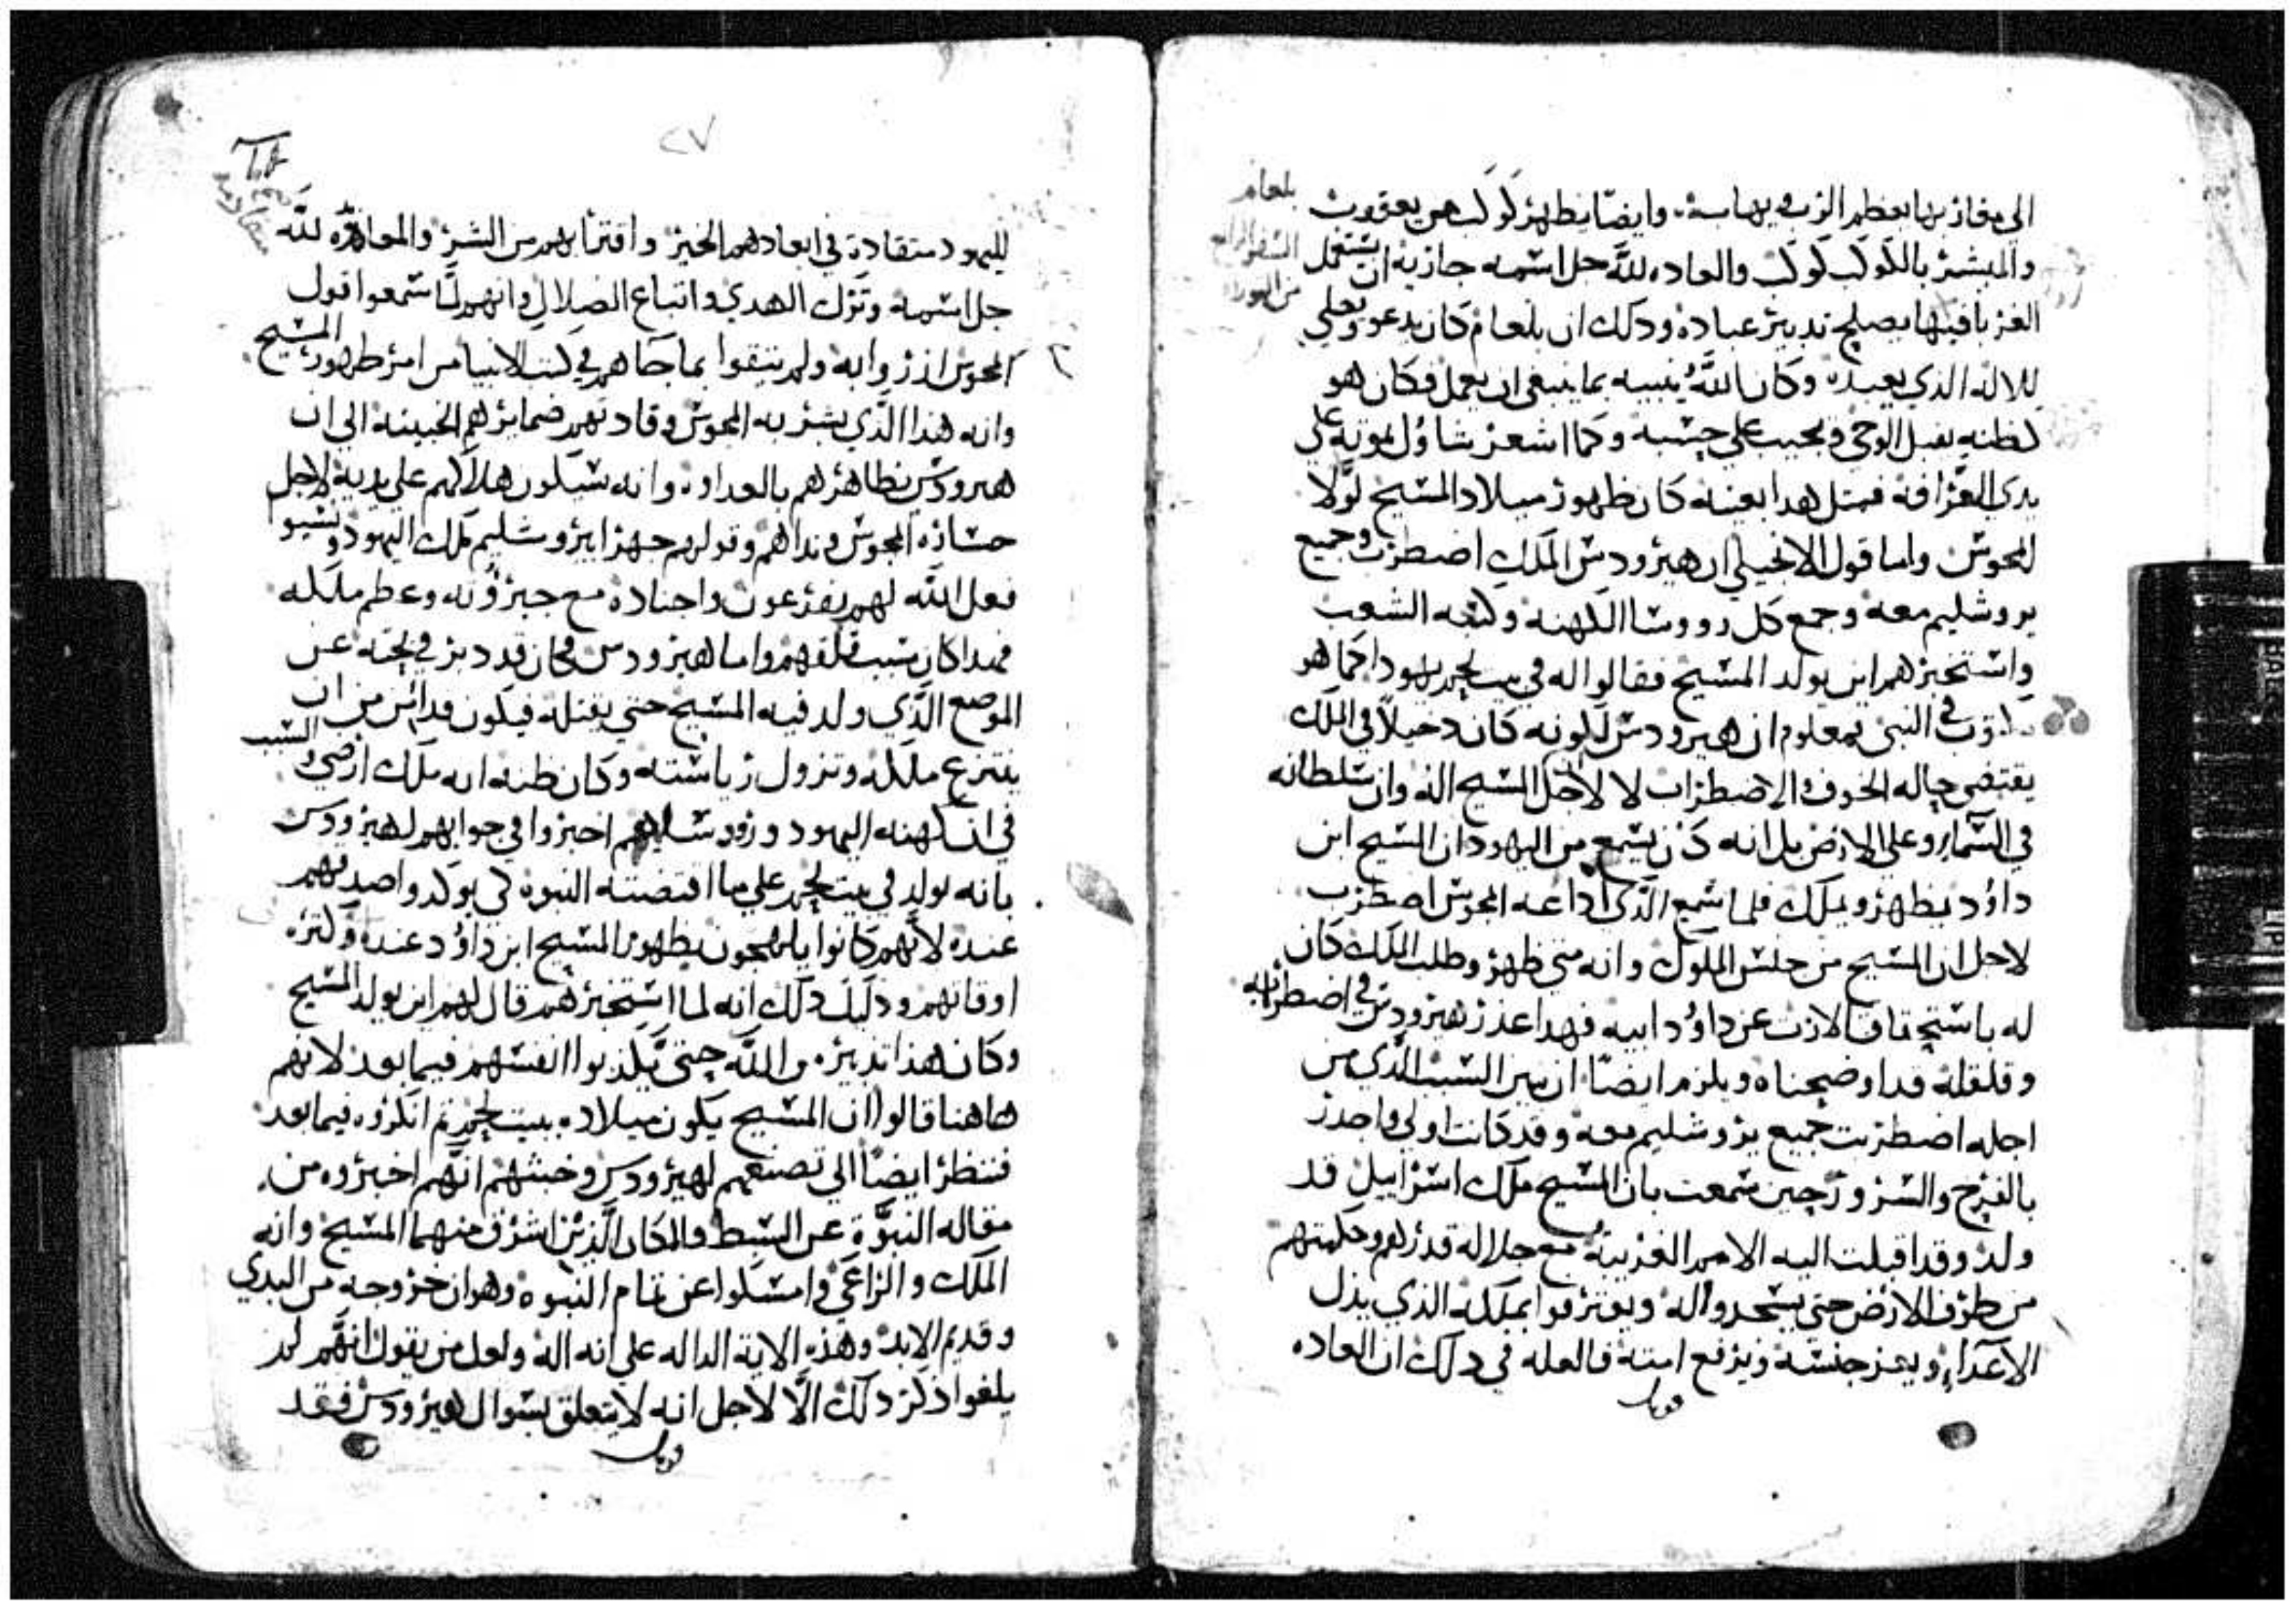 بلعام
السفر الرابع
من التوراه
الى مفاذ بها يعظم الرب في بها سه وايضا يظهر كوكب من يعقوب
والمبشر بالكوكب كوكب والعاده لله جل اسمه جازيه ان يستعمل
الغربا فيها يصلح تدبير عباده ودلك ان بلعام كان يدعو ويعلى
للاله الذي يعبده وكان الله ينبيه بما ينبغى ان يعمل فكان هو
لظنه يقبل الوحي ويجيب على حسبه وكما اشعر شاول بموته على
يدى العرافه فمثل هدا بعينه كان ظهور ميلاد المسيح لولا
المجوس واما قول الانجيلي ان هيرودس الملك اضطرب وجميع
يروشليم معه وجمع كل رووسا الكهنه وكتبه الشعب
واستخبرهم اين يولد المسيح فقالوا له في بيت لحم يهودا كما هو
مكتوب في النبى فمعلوم ان هيرودس لكونه كان دخيلا في الملك
يقتضى حاله الخوف والاضطراب لا لاجل المسيح اله وان سلطانه
في السماء وعلى الارض بل انه كان يسمع من اليهود ان المسيح ابن
داوود يظهر ويملك فلما سمع الذي اداعه المجوس اضطرب
لاجل ان المسيح من جنس الملوك وانه متى ظهر وطلب الملك كان
له باستحقاق الارث عن داوود ابيه فهدا عذر هيرودس في اضطرابه
وقلقله قد اوضحناه ويلزم ايضا ان نبين السبب الذي من
اجله اضطربت جميع يروشليم معه وقد كانت اولى واجدر
بالفرح والسرور حين سمعت بان المسيح ملك اسراييل قد
ولد وقد اقبلت اليه الامم الغريبة مع جلاله قدرهم وحكمتهم
من طرف الارض حتى يسجدوا له ويعترفوا بملكه الذي يذل
الاعداء ويعز جنسه ويرفع امته فالعله في دلك ان العاده
قوبل
٢٧
لليهود متقادة في ابعادهم الخير واقترابهم من الشر والمعاندة لله
جل اسمه وترك الهدي واتباع الضلال وانهم لما سمعوا قول
المجوس ازروا به ولم يتقوا بما جاهم في كتب الانبيا من امر ظهور المسيح
وانه هذا الذي بشر به المجوس وقادتهم ضمايرهم الخبيثه الى ان
هيرودس يظاهرهم بالعداوه وانه سيكون هلاكهم على يديه لاجل
جسارة المجوس ونداهم وقولهم جهرا يروشليم ملك اليهود ونسيوا
فعل الله لهم بفرعون واجناده مع جبروته وعظم ملكه
فهدا كان سبب قلقهم واما هيرودس فكان قد دبر في بحثه عن
الموضع الذي ولد فيه المسيح حتى يقتله فيكون قد امن من ان
ينتزع ملكه وتزول رياسته وكان ظنه انه ملك ارضي والسبب
في ان كهنه اليهود ورووساهم اخبروا في جوابهم لهيرودس
بانه يولد في بيت لحم على ما اقتضته النبوه لكي يوكدوا صدقهم
عنده لانهم كانوا يلهجون بظهور المسيح ابن داوود عنده وكثره
اوقاتهم ودليل دلك انه لما استخبرهم قال لهم اين يولد المسيح
وكان هذا تدبيره من الله حتى يكذبوا انفسهم فيما بعد لانهم
هاهنا قالوا ان المسيح يكون ميلاده ببيت لحم ثم انكروه فيما بعد
فتنظر ايضا الى تصنعهم لهيرودس وخبثهم انهم اخبروه من
مقاله النبوة عن السبط والمكان الذين اشرق منهما المسيح وانه
الملك والراعي وامسكوا عن تمام النبوه وهو ان خروجه من البدي
وقديم الابد وهذه الاية الداله على انه اله ولعل من يقول انهم لم
يلغوا ذكر دلك الا لاجل انه لا يتعلق بسوال هيرودس فقد
قوبل